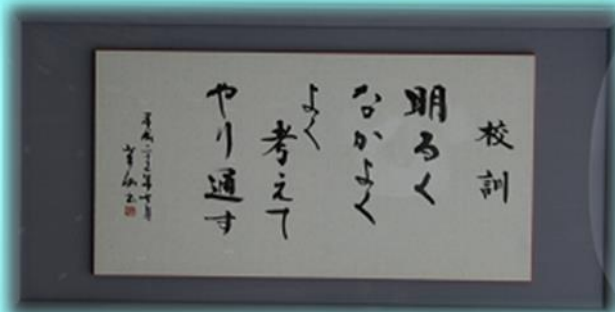 校訓
明るく
なかよく
よく
考えて
やり通す